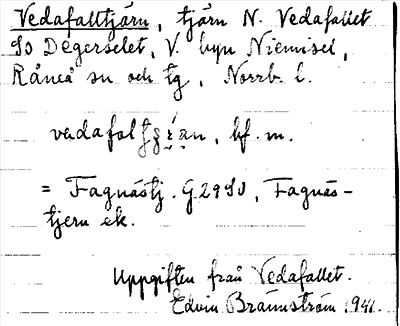 Vedafalltjärn, tjärn N. Vedafallet
SO Degerselet, V. byn Niemisel,
Råneå sn och tg, Norrb. l.
bf. m.
= Fagnästj. G 29 SO, Fagnäs-
tjern ek.
Uppgiften från Vedafallet.
Edvin Brännström 1941.